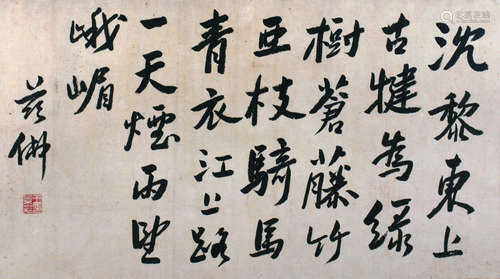 沈黎東上
古犍為綠
樹蒼藤竹
亞枝騎馬
青衣江上路
一天煙雨望
峨嵋